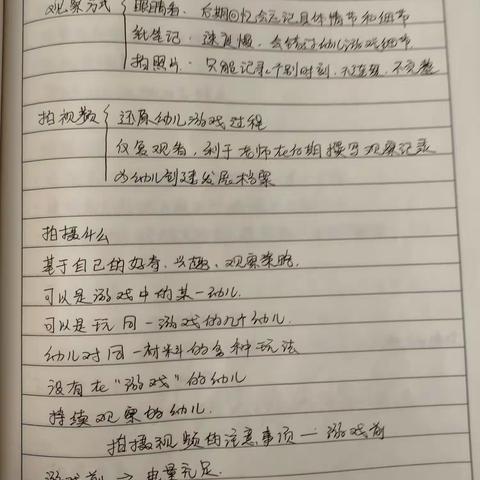 观察方式 { 眼睛看：后期回忆会忘记具体情节和细节
纸笔记：速度慢，会错过幼儿游戏细节
拍照片：只能记录个别时刻，不连续，不完整
拍视频 { 还原幼儿游戏过程
反复观看，利于老师在后期撰写观察记录
为幼儿创建发展档案
拍摄什么
基于自己的好奇、兴趣、观察策略.
可以是游戏中的某一幼儿.
可以是玩同一游戏的几个幼儿.
幼儿对同一材料的各种玩法
没有在“游戏”的幼儿
持续观察的幼儿.
拍摄视频的注意事项 — 游戏前
游戏前 → 电量充足.